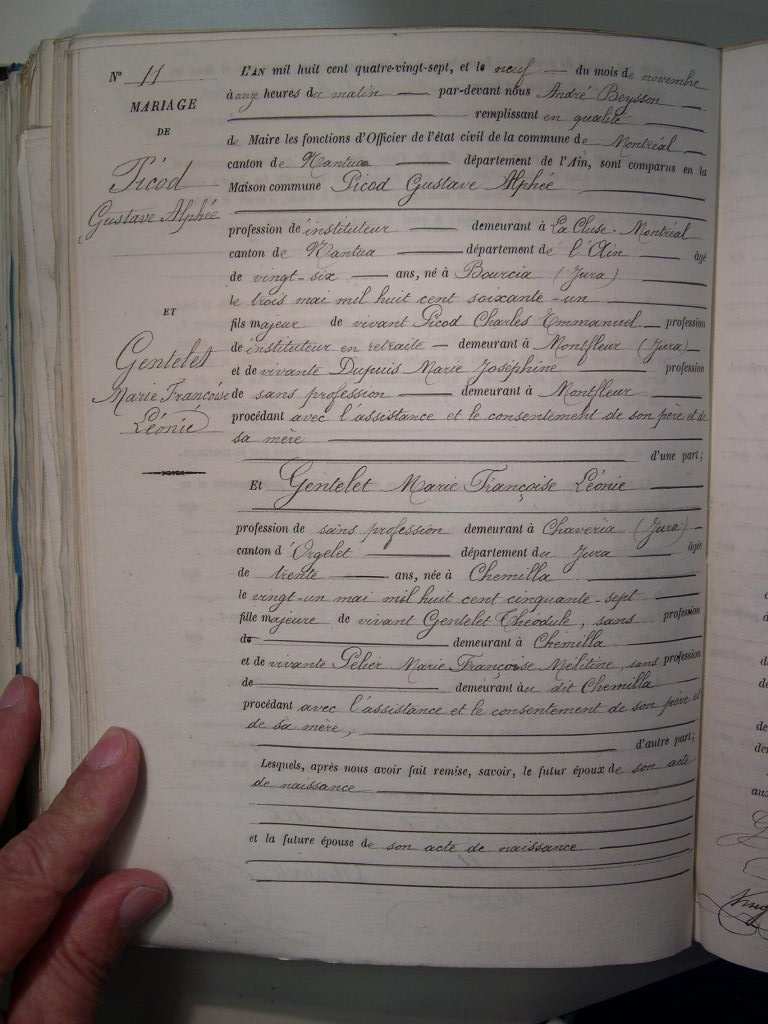 N° 11
MARIAGE
DE
Picod
Gustave Alphée
ET
Gentelet
Marie Françoise
Léonie
L'AN mil huit cent quatre-vingt-sept, et le neuf du mois de novembre
à onze heures du matin par-devant nous André Beysson
remplissant en qualité
de Maire les fonctions d'Officier de l'état civil de la commune de Montréal
canton de Nantua département de l'Ain, sont comparus en la
Maison commune Picod Gustave Alphée
profession de instituteur demeurant à La Cluse-Montréal
canton de Nantua département de l'Ain âgé
de vingt-six ans, né à Bourcia (Jura)
le trois mai mil huit cent soixante-un
fils majeur de vivant Picod Charles Emmanuel profession
de instituteur en retraite demeurant à Montfleur (Jura)
et de vivante Dupuis Marie Joséphine profession
de sans profession demeurant à Montfleur
procédant avec l'assistance et le consentement de son père et de
sa mère
d'une part;
Et Gentelet Marie Françoise Léonie
profession de sans profession demeurant à Chaveria (Jura)
canton d'Orgelet département du Jura âgée
de trente ans, née à Chemilla
le vingt-un mai mil huit cent cinquante-sept
fille majeure de vivant Gentelet Théodule, sans profession
de demeurant à Chemilla
et de vivante Pelier Marie Françoise Mélitine, sans profession
de demeurant au dit Chemilla
procédant avec l'assistance et le consentement de son père et
de sa mère,
d'autre part;
Lesquels, après nous avoir fait remise, savoir, le futur époux de son acte
de naissance
et la future épouse de son acte de naissance